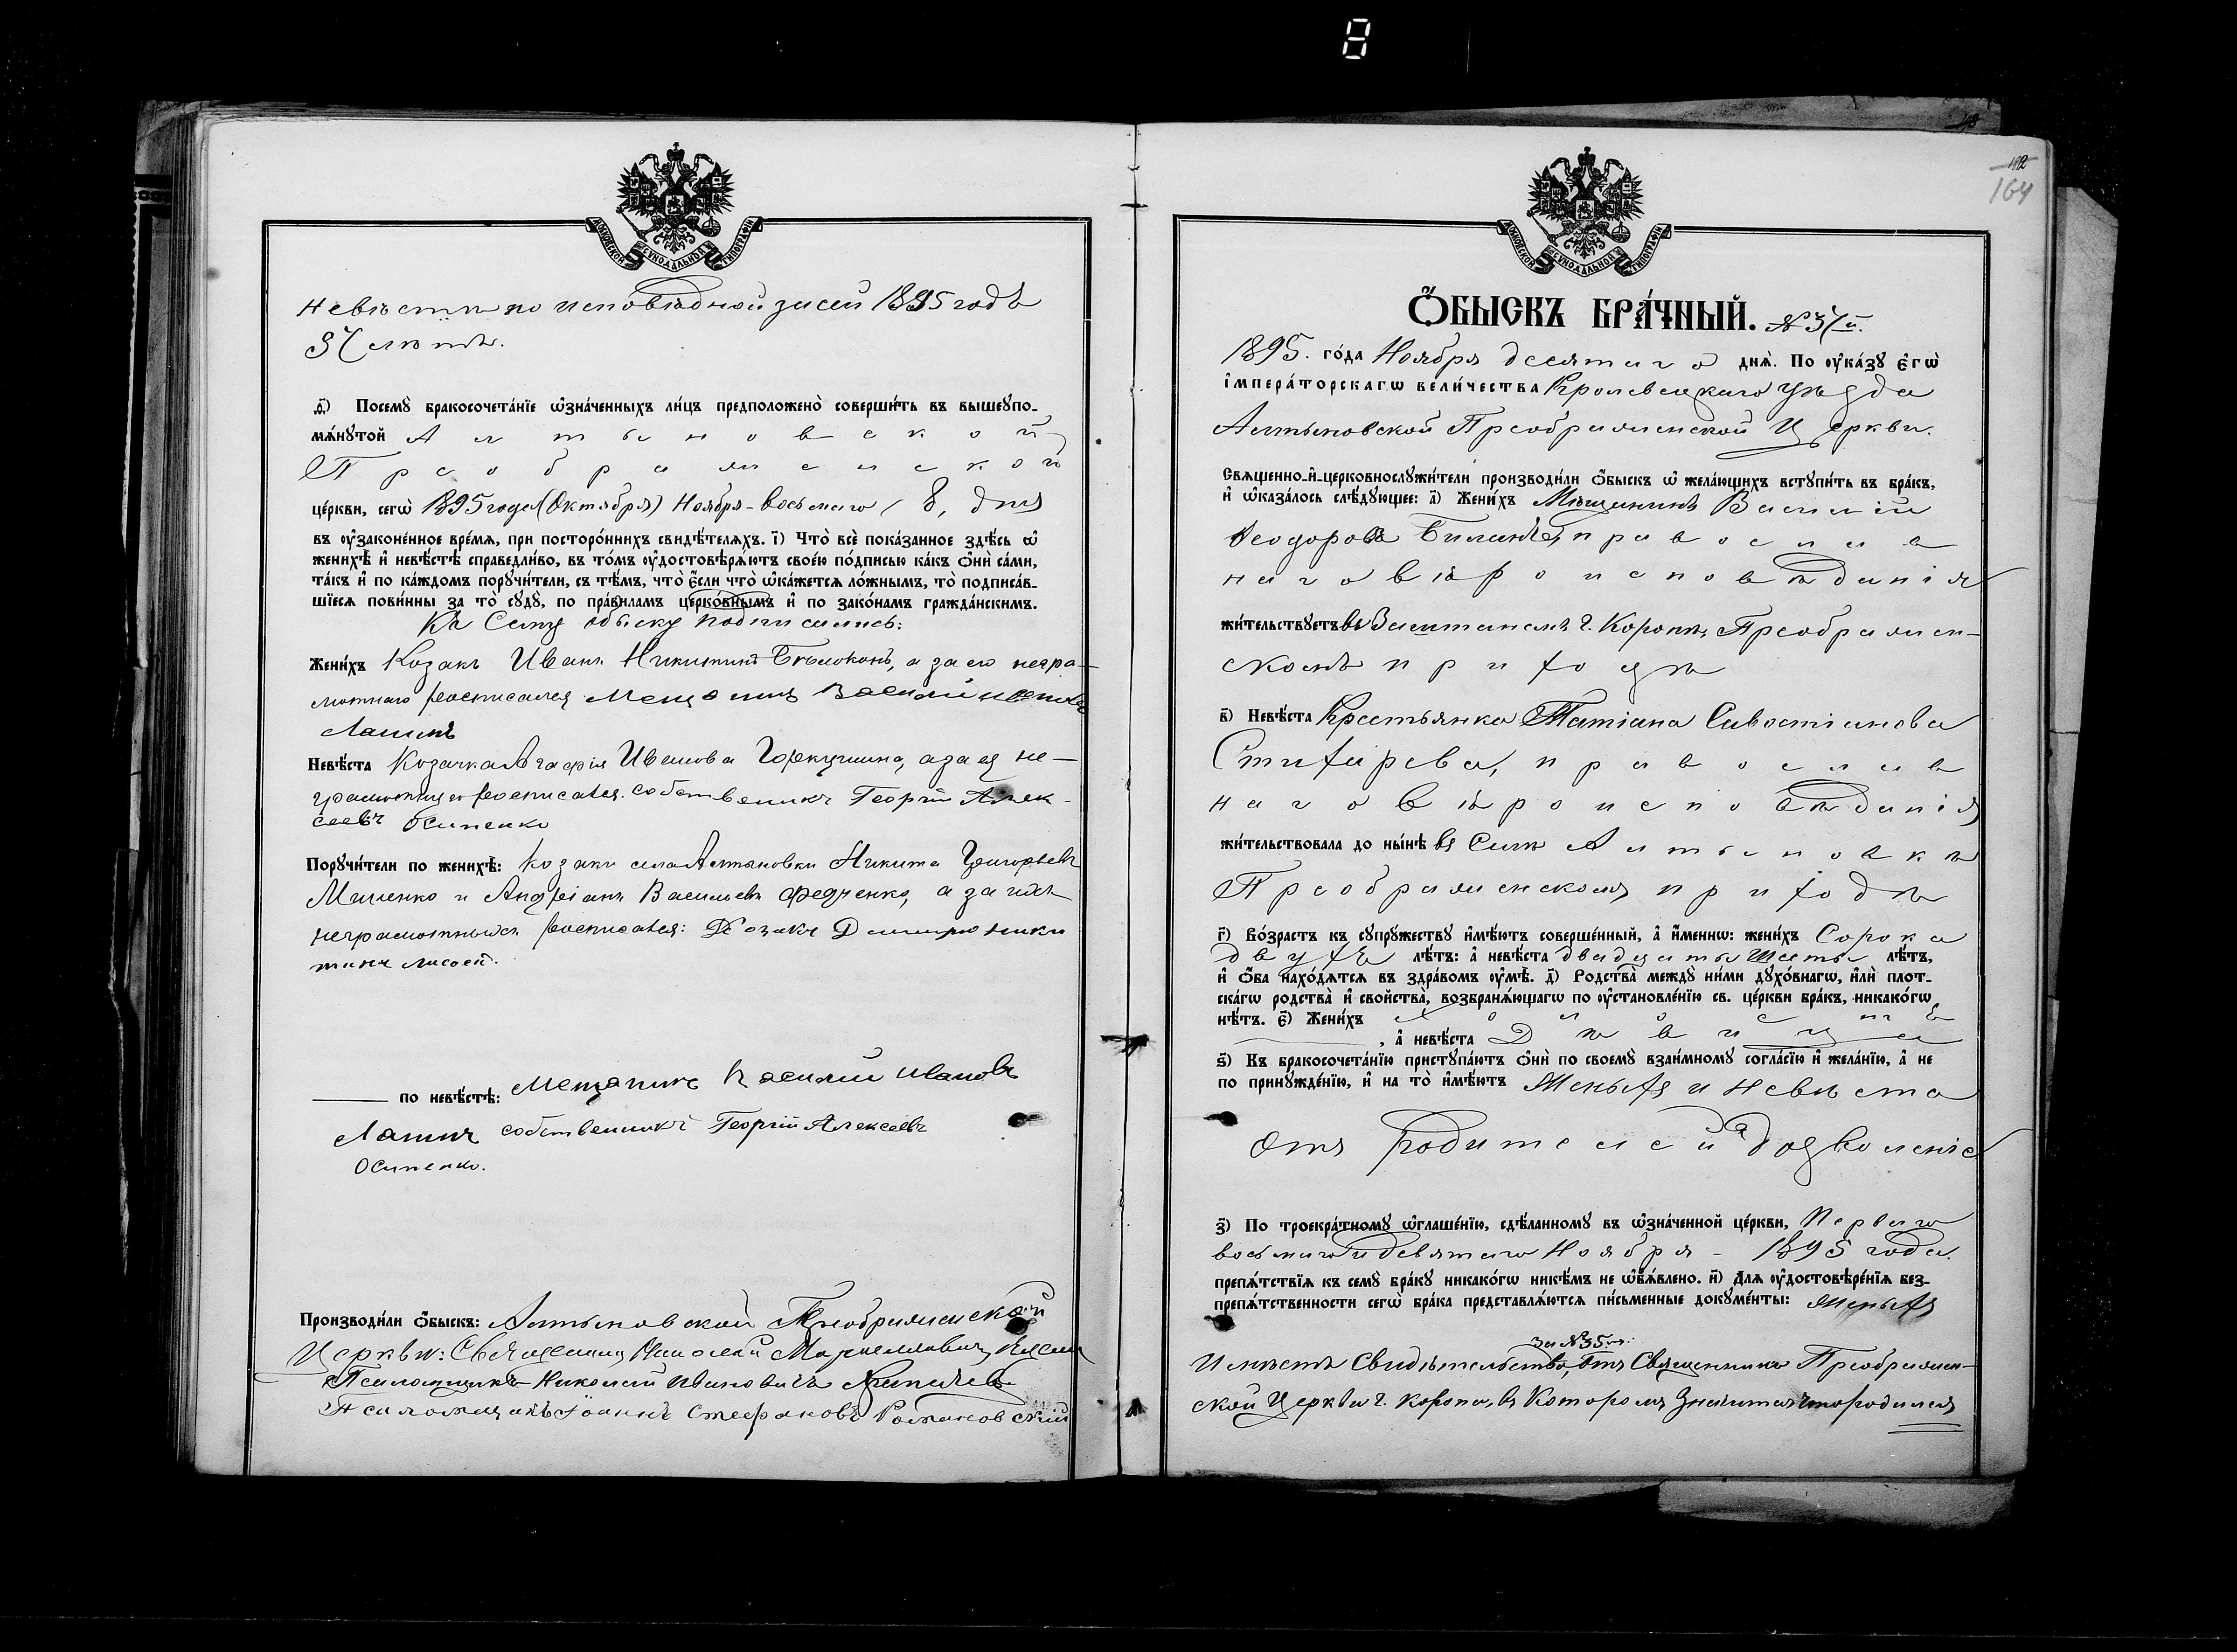 8
МОСКОВСКОЙ СѴНОДАЛЬНОЙ ТИПОГРАФІИ
невѣста по исповѣдной записи 1895 годъ
лѣтъ.
ѳ҃) Посемꙋ бракосочета́нїе ѡ҆зна́ченныхъ ли́цъ предположено̀ соверши́ть въ вышеꙋпо-
мѧ́нꙋтой Алтыновской
Преображенской
це́ркви, сегѡ̀ 1895 года (Октября) Ноября - восьмого, 8, дня
въ ᲂу҆зако́ненное вре́мѧ, при посторо́ннихъ свидѣ́телѧхъ. і҃) Что̀ всѐ пока́занное здѣ́сь ѡ҆
женихѣ̀ и҆ невѣ́стѣ справедли́во, въ то́мъ ᲂу҆достовѣрѧ́ютъ свое́ю по́дписью ка́къ ѻ҆нѝ са́ми,
та́къ и҆ по ка́ждомъ порꙋчи́тели, съ тѣ́мъ, что̀ є҆́сли что̀ ѡ҆ка́жетсѧ ло́жнымъ, то̀ подписа́в-
шїесѧ пови́нны за то̀ сꙋдꙋ̀, по пра́виламъ церко́внымъ и҆ по зако́намъ гражда́нскимъ.
Къ сему обыску подписались:
Жени́хъ Козакъ Иванъ Никитинъ Бѣлоконь, а за его негра-
мотнаго росписался Мещанинъ Василий Ивановъ
Лапинъ
Невѣ́ста Козачка Агафія Иванова Горкушина, а за ея не-
грамотную росписался собственникъ Георгій Алек-
сеевъ Осипенко
Порꙋчи́тели по женихѣ̀: Козаки села Алтыновки Никита Григорьевъ
Мишенко и Андріанъ Васильевъ Федченко, а за ихъ
неграмотныхъ росписался: Козакъ Димитро Ники
тинъ Лисоей.
по невѣ́стѣ: Мещанинъ Василий Ивановъ
Лапинъ собственникъ Георгій Алексеевъ
Осипенко.
Производи́ли ѻ҆́быскъ: Алтыновской Преображенской
Церкви: Священникъ Николай
Псаломщикъ Николай Ивановичъ
Псаломщикъ Іоаннъ Стефановъ Романовскій
112
164
МОСКОВСКОЙ СѴНОДАЛЬНОЙ ТИПОГРАФІИ
Ѻ҆́БЫСКЪ БРА́ЧНЫЙ. № 37й.
1895. го́да Ноября десятаго днѧ̀. По ᲂу҆ка́зꙋ Є҆гѡ̀
і҆мпера́торскагѡ вели́чества Кролевецкаго уѣзда
Алтыновской Преображенской Церкви.
Свѧще́нно-и҆-церковнослꙋжи́тели производи́ли ѻ҆́быскъ ѡ҆ жела́ющихъ встꙋпи́ть въ бра́къ,
и҆ ѡ҆каза́лось слѣ́дꙋющее: а҃) Жени́хъ Мѣщанинъ Василій
Ѳеодоровъ православ
наго вѣроисповѣданія
жи́тельствꙋетъ въ Заштатномъ г. Коропѣ, Преображен-
скомъ приходѣ
в҃) Невѣ́ста Крестьянка Татіана Савостіанова
православ
наго вѣроисповѣданія
жи́тельствовала до ны́нѣ въ Селѣ Алтыновкѣ
Преображенскомъ приходѣ
г҃) Во́зрастъ къ сꙋпрꙋ́жествꙋ и҆мѣ́ютъ соверше́нный, а҆̀ и҆́меннѡ: жени́хъ Сорока
двухъ лѣ́тъ: а҆̀ невѣ́ста двадцаты шесты лѣ́тъ,
и҆ ѻ҆́ба нахо́дѧтсѧ въ здра́вомъ ᲂу҆мѣ̀. д҃) Родства̀ междꙋ̀ ни́ми дꙋхо́внагѡ, и҆лѝ плот-
ска́гѡ родства̀ и҆ сво́йства̀, возбранѧ́ющагѡ по ᲂу҆становле́нїю св. це́ркви бра́къ, никако́гѡ
нѣ́тъ. є҃) Жени́хъ Холостъ
, а҆̀ невѣ́ста Дѣвица
ѕ҃) Къ бракосочета́нїю пристꙋпа́ютъ ѻ҆нѝ по своемꙋ̀ взаи́мномꙋ согла́сїю и҆ жела́нїю, а҆̀ не
по принꙋжде́нїю, и҆ на то̀ и҆мѣ́ютъ Женихъ и невѣста
отъ родителей дозволеніе
з҃) По троекра́тномꙋ ѡ҆глаше́нїю, сдѣ́ланномꙋ въ ѡ҆зна́ченной це́ркви, Перваго
восьмаго и девятаго Ноября - 1895 года.
препѧ́тствїѧ къ семꙋ̀ бра́кꙋ никако́гѡ никѣ́мъ не ѡ҆б̾ѧ́влено. и҃) Длѧ ᲂу҆достовѣре́нїѧ без-
препѧ́тственности сегѡ̀ бра́ка представлѧ́ютсѧ пи́сьменные докꙋме́нты: Женихъ
за № 35
Имѣетъ Свидѣтельство, отъ Священника Преображен-
ской Церкви г. Коропа, въ Которомъ Значится что родился